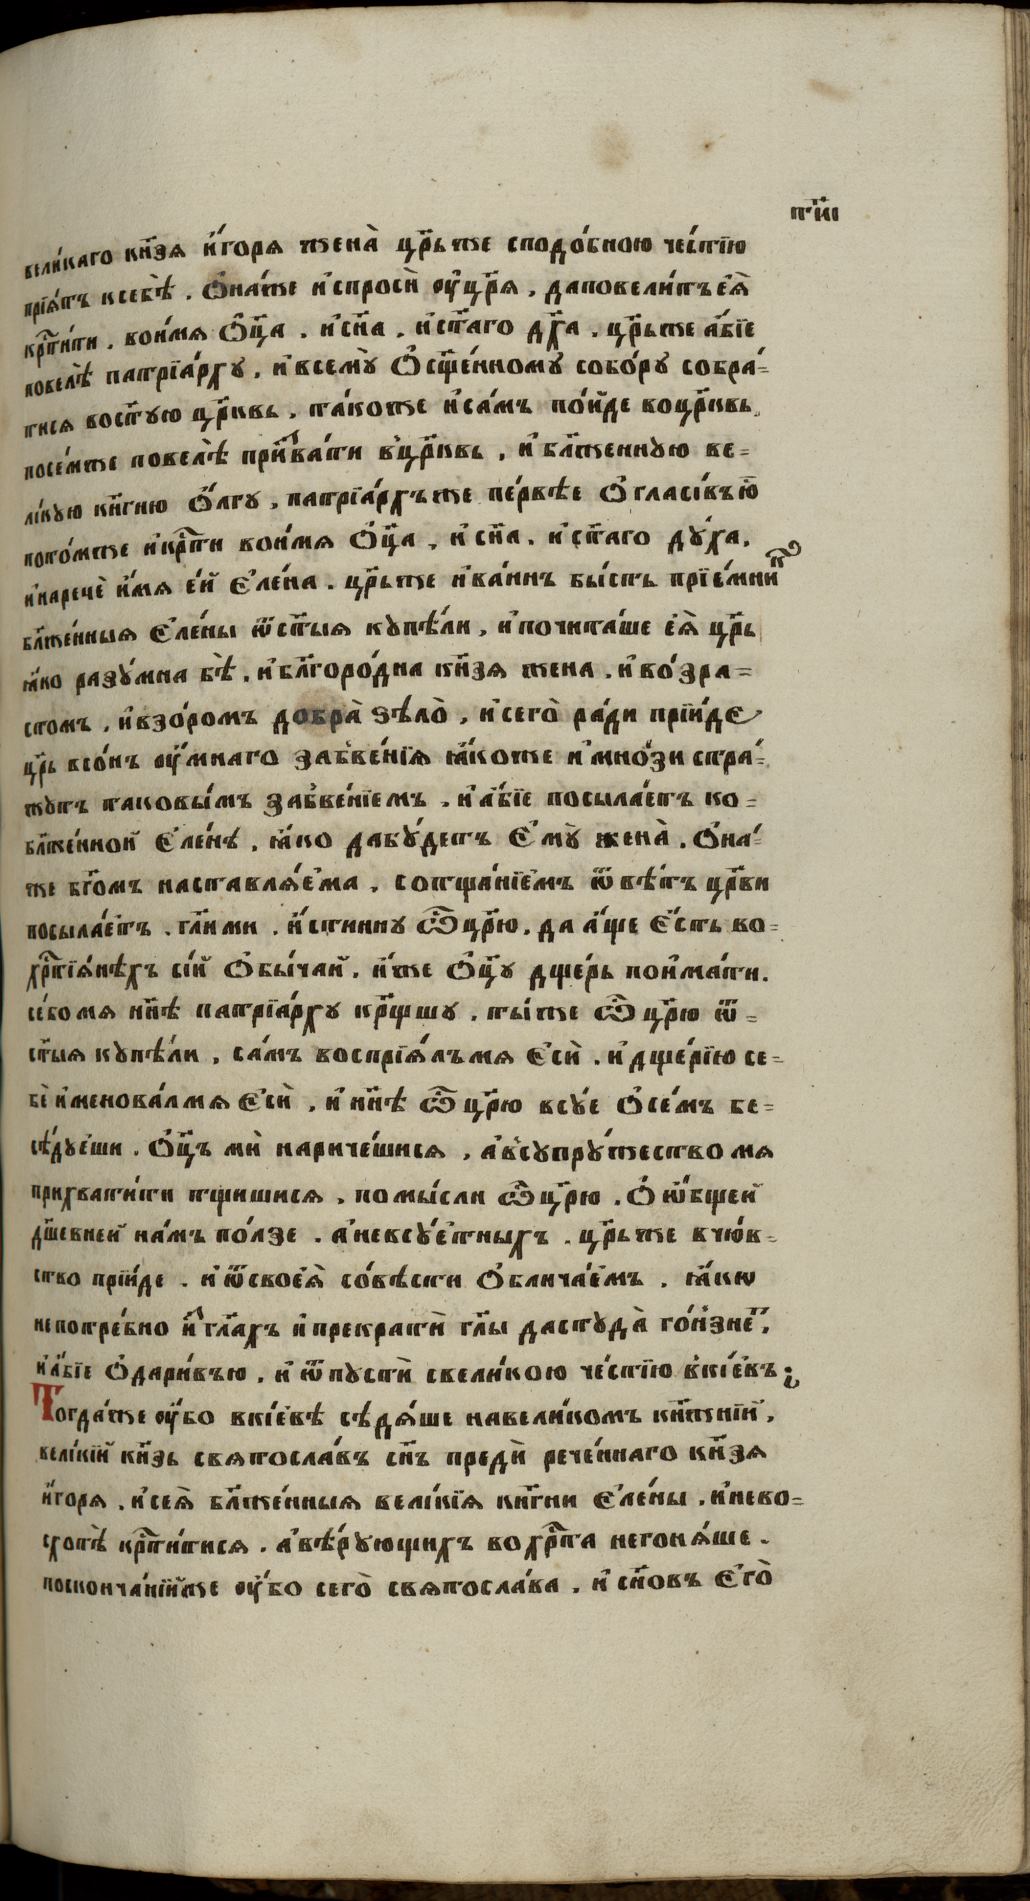 п҃и
вели́каго кн҃зя и҆́горя женà цр҃ьже сподо́бною че́стїю
прїя́тъ ксебѣ̀. Ѻ҆на́же и҆спросѝ ѹ҆цр҃я, даповели́тъ е҆я̀
кр҃ти́ти. вои́мя Ѻ҆ц҃а. и҆сн҃а. и҆ст҃аго дх҃а. цр҃ьже а҆́бїе
повелѣ̀ патрїа́рху. и҆всемꙋ̀ Ѻ҆сщ҃е́нному собо́рꙋ собра́=
тися вост҃ую цр҃ковь. та́коже и҆са́мъ по́йде воцр҃ковь.
посе́мже повелѣ̀ призва́ти в̾цр҃ковь, и҆ бл҃женную ве=
ли́кую кн҃гню Ѻ҆́лгу. патрїа́рхъже пе́рвѣе Ѻ҆гласи́въю̀
пото́мже и҆кр҃ти вои́мя Ѻ҆ц҃а, и҆ сн҃а. и҆ ст҃аго ду́ха.
и҆наречѐ и҆́мя е҆́й Е҆ле́на. цр҃ьже и҆ва́ннъ бы́сть прїе́мникъ
бл҃же́нныя Е҆ле́ны ѿст҃ы́я купѣ́ли, и҆почита́ше е҆я̀ цр҃ь
ꙗ҆́ко разу́мна бѣ̀. и҆бл҃горо́дна кн҃зя жена. и҆во́зра=
стомъ, и҆взо́ромъ добрà ѕѣлò, и҆сегò ра́ди прїи́де
цр҃ь всо́нъ ѹ҆́мнаго забве́нїя ꙗ҆́коже и҆мно́зи стра́=
жутъ таковы́мъ забве́нїемъ. и҆а҆́бїе посыла́етъ ко=
бл҃же́нной Е҆ле́нѣ, ꙗ҆́ко дабу́детъ Е҆мꙋ̀ женà. Ѻ҆на́=
же бг҃омъ наставля́ема, сотща́нїемъ ѿвѣ́тъ цр҃ви
посыла́етъ. гл҃ими. и҆́стинну Ѽцр҃ю. да а҆́ще Е҆́сть во=
хр҃тїя́нѣхъ сі́й Ѻ҆бы́чай. и҆́же Ѻ҆ц҃у дще́рь пои҆ма́ти.
се́бомя нн҃ѣ патрїа́рху кр҃щшу. ты́же Ѽ цр҃ю ѿ=
ст҃ы́я купѣ́ли, са́мъ воспрїя́лъмя Е҆сѝ. и҆дще́рїю се=
бѐ и҆менова́лмя Е҆сѝ, и҆ нн҃ѣ Ѽцр҃ю всу́е Ѻ҆се́мъ бе=
сѣ́дуеши. Ѻ҆ц҃ъ мѝ нариче́шися, а҆в̾супру́жество мя
прихвати́ти тщишися, помы́сли Ѽцр҃ю. Ѻ҆ Ѻ҆́бщей
дш҃евней на́мъ по́лзе. а҆невсу́етныхъ. цр҃ьже вчю́в=
ство прїи́де. и҆ѿсвоея̀ со́вѣсти Ѻ҆блича́емъ. ꙗ҆́кѡ
непотре́бно и҆ гл҃ахъ и҆прекратѝ гл҃ы дастудà го́ньзнетъ,
и҆а҆́бїе Ѻ҆дари́въю, и҆ ѿпустѝ свели́кою че́стїю вкі́евъ;
Тогда́же ѹ҆́бо вкі́евѣ сѣдя́ше навели́комъ кн҃же́нїй,
вели́кїй кн҃зь святосла́въ сн҃ъ предѝ рече́ннаго кн҃зя
и҆́горя. и҆сея̀ бл҃же́нныя вели́кїя кн҃гни Е҆ле́ны. и҆нево=
схотѣ̀ кр҃ти́тися. а҆вѣ́рующихъ во хр҃та негоня́ше.
посконча́нїиже ѹ҆́бо сегò святосла́ва. и҆ сн҃овъ Е҆гò